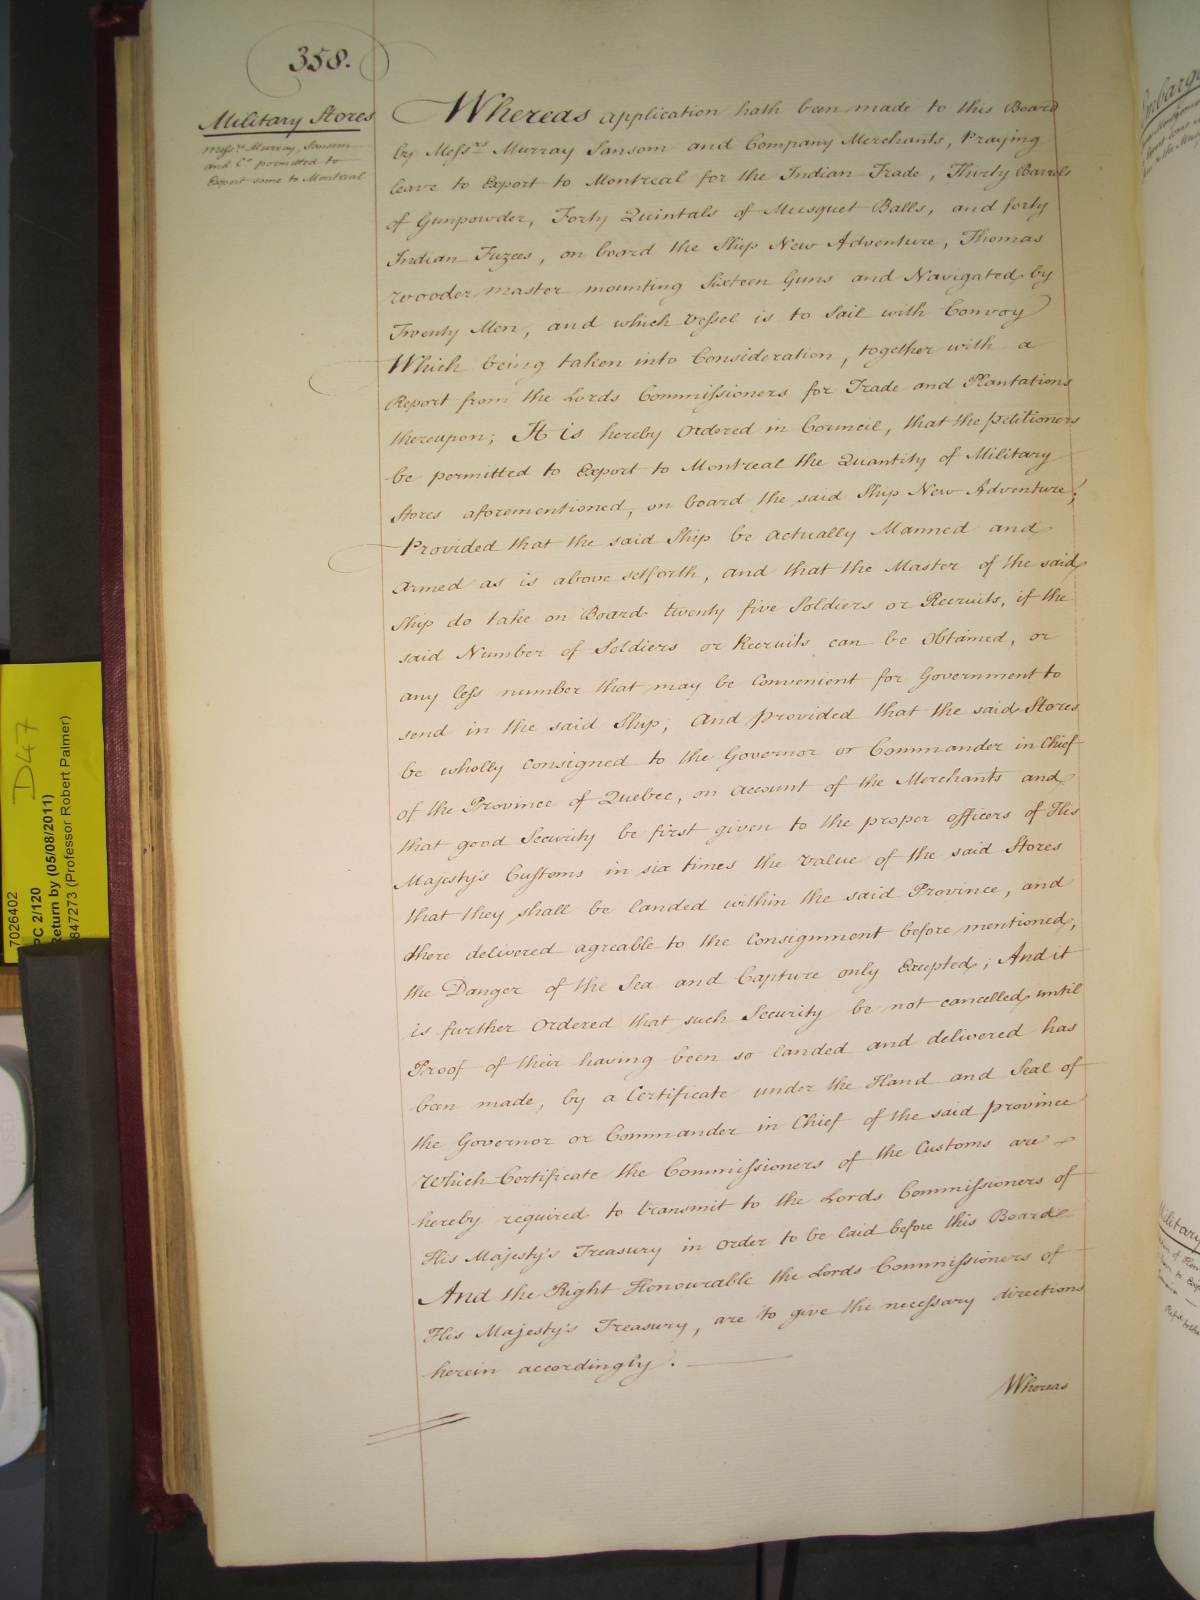 358.
Military Stores
Messrs Murray, Sansom
and Co permitted to
Export some to Montreal
Whereas application hath been made to this Board
by Messrs Murray Sansom and Company Merchants, Praying
leave to Export to Montreal for the Indian Trade, Thirty Barrels
of Gunpowder, Forty Quintals of Musquet Balls, and forty
Indian Fuzees, on board the Ship New Adventure, Thomas
Wooder master mounting Sixteen Guns and Navigated by
Twenty Men, and which Vessel is to Sail with Convoy
Which being taken into Consideration, together with a
Report from the Lords Commissioners for Trade and Plantations
thereupon; It is hereby Ordered in Council, that the petitioners
be permitted to Export to Montreal the Quantity of Military
Stores aforementioned, on board the said Ship New Adventure;
Provided that the said Ship be actually Manned and
Armed as is above setforth, and that the Master of the said
Ship do take on Board twenty five Soldiers or Recruits, if the
said Number of Soldiers or Recruits can be Obtained, or
any less number that may be Convenient for Government to
send in the said Ship, And provided that the said Stores
be wholly Consigned to the Governor or Commander in Chief
of the Province of Quebec, on Account of the Merchants and
that good Security be first given to the proper officers of His
Majesty's Customs in six times the Value of the said Stores
that they shall be landed within the said Province, and
there delivered agreable to the Consignment before mentioned,
the Danger of the Sea and Capture only Excepted; And it
is further Ordered that such Security be not cancelled until
Proof of their having been so landed and delivered has
been made, by a Certificate under the Hand and Seal of
the Governor or Commander in Chief of the said province
Which Certificate the Commissioners of the Customs are
hereby required to transmit to the Lords Commissioners of
His Majesty's Treasury in Order to be laid before this Board
And the Right Honourable the Lords Commissioners of
His Majesty's Treasury, are to give the necessary directions
herein accordingly.
Whereas
D47
7026402
PC 2/120
Return by (05/08/2011)
847273 (Professor Robert Palmer)